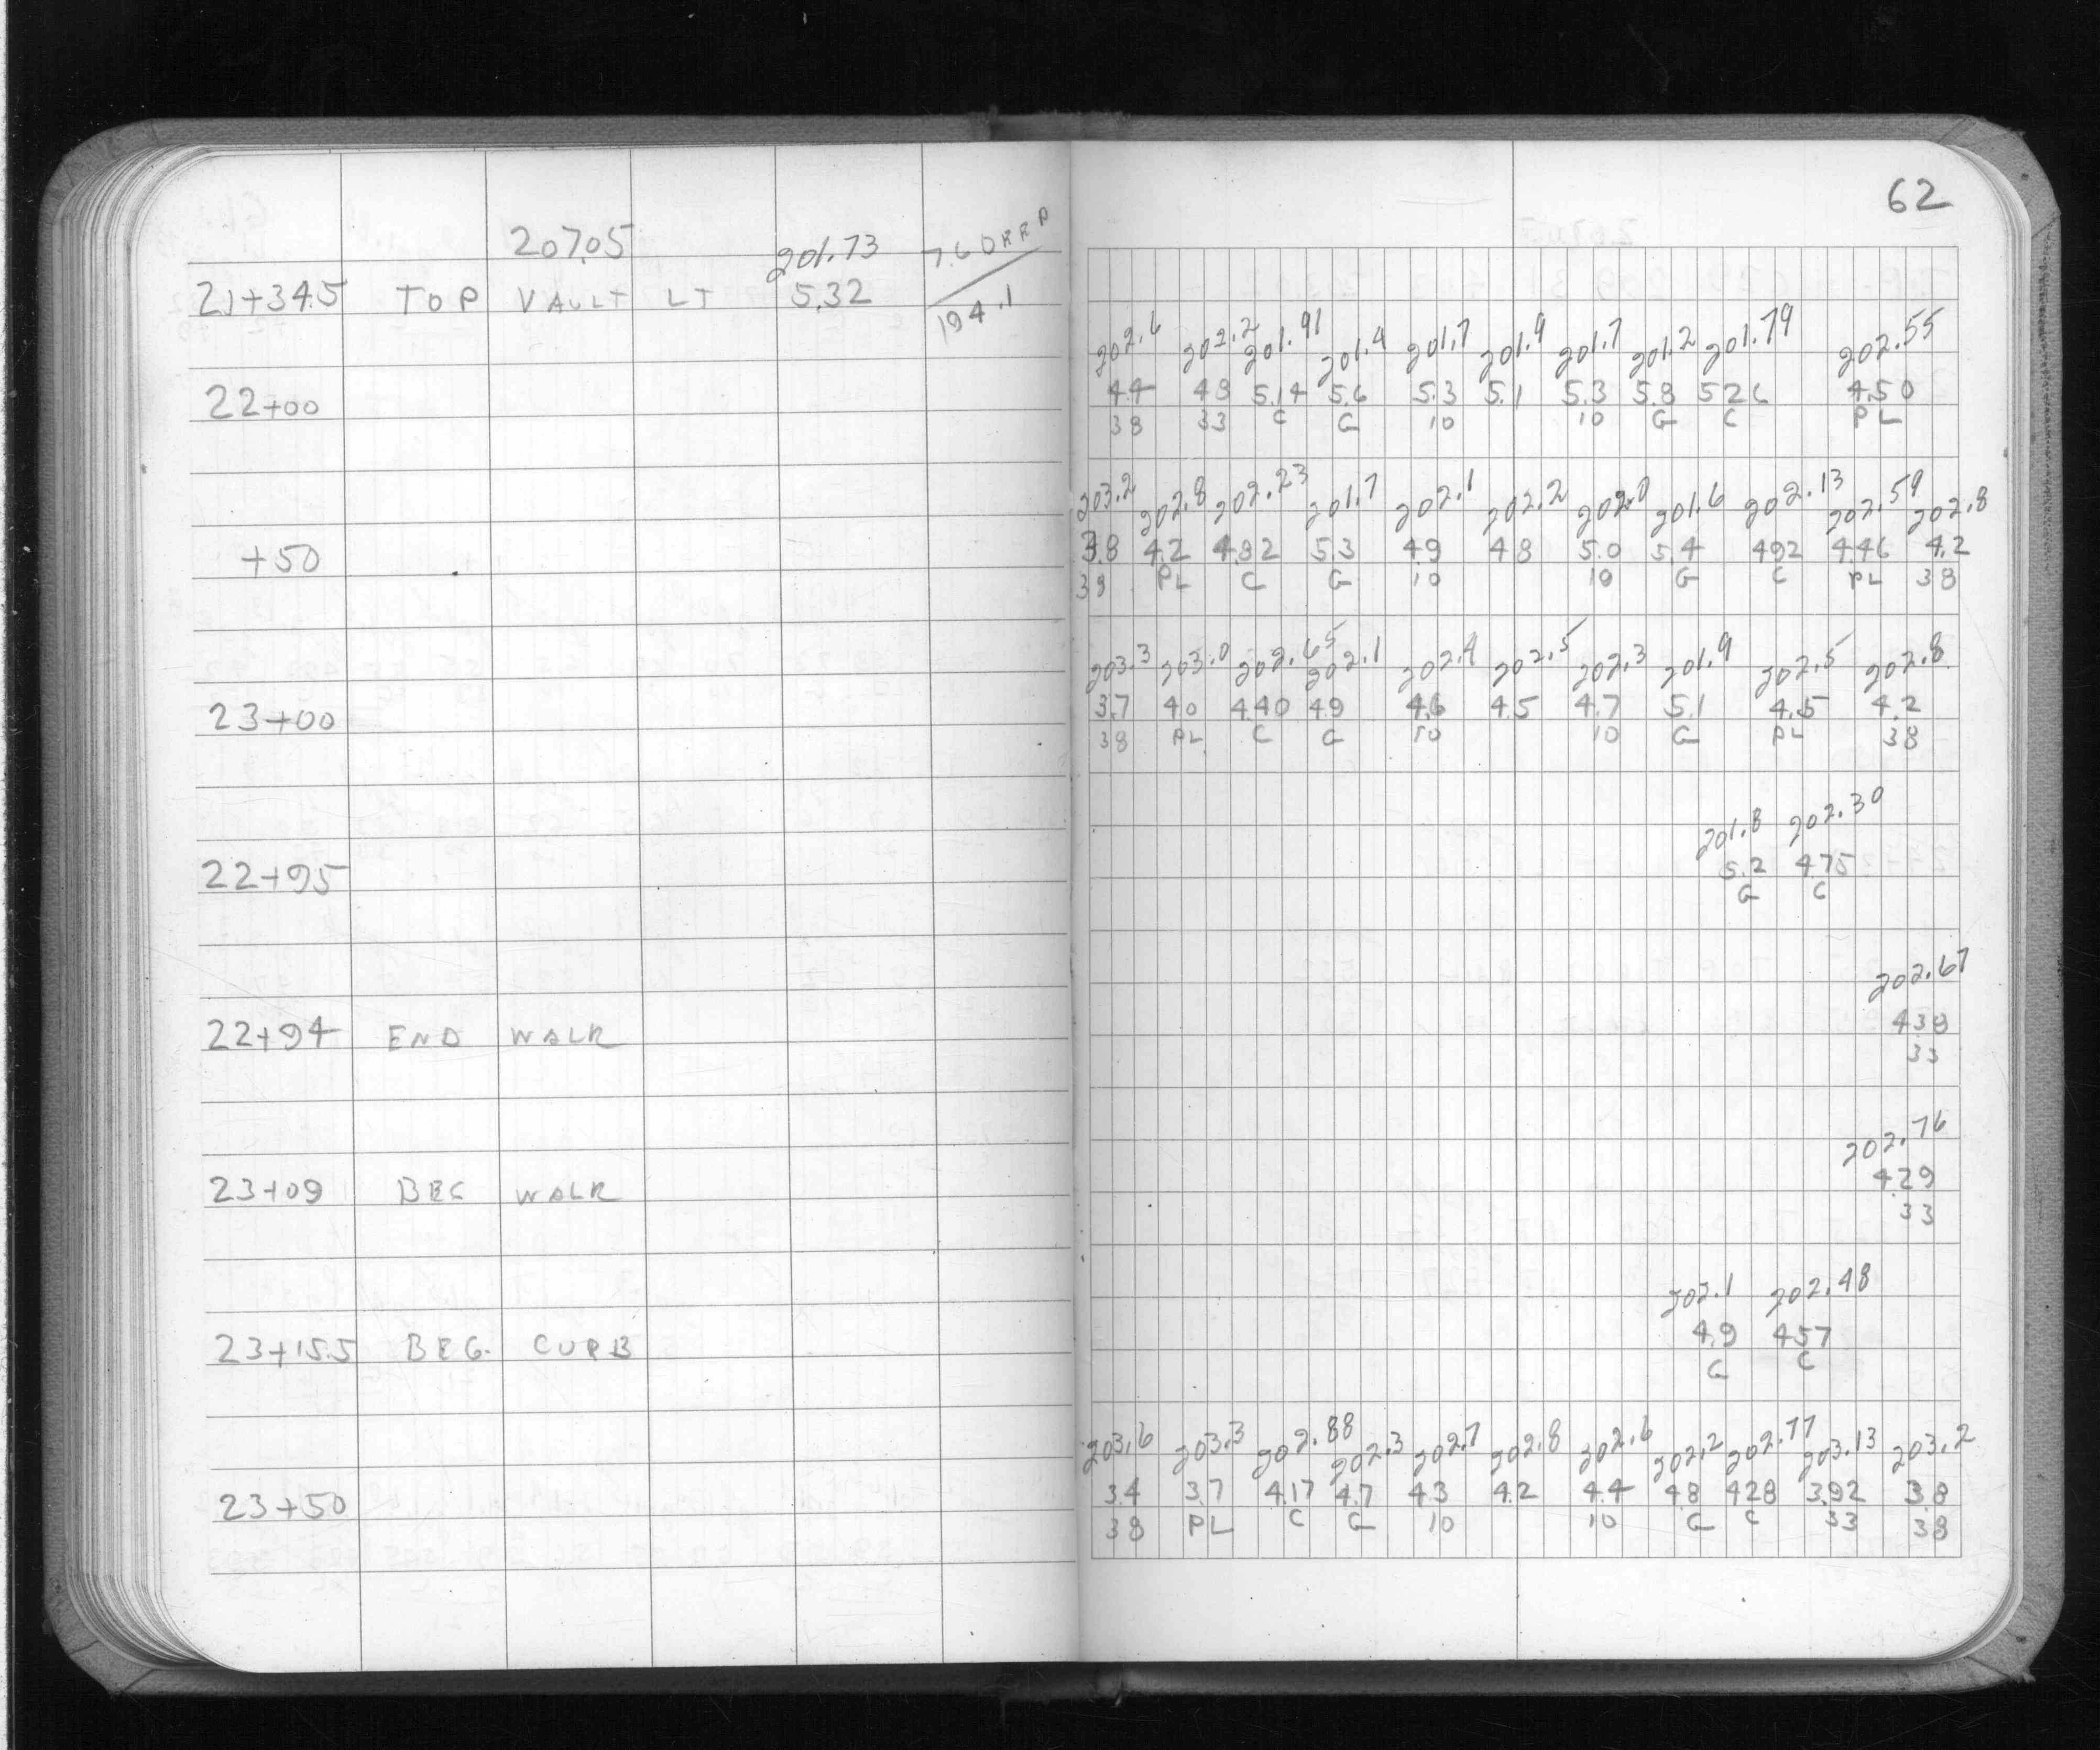 62
207.05 201.73 7.60
21+34.5 TOP VAULT LT 5.32 194.1
202.6 202.2 201.91 201.4 201.7 201.9 201.7 201.2 201.79 202.55
22+00 4.4 4.8 5.14 5.6 5.3 5.1 5.3 5.8 5.26 4.50
38 33 C G 10 10 G C PL
203.2 202.8 202.23 201.7 202.1 202.2 202.0 201.6 202.13 202.59 202.8
+50 3.8 4.2 4.82 5.3 4.9 4.8 5.0 5.4 4.92 4.46 4.2
38 PL C G 10 10 G C PL 38
203.3 203.0 202.65 202.1 202.4 202.5 202.3 201.9 202.5 202.8
23+00 3.7 4.0 4.40 4.9 4.6 4.5 4.7 5.1 4.5 4.2
38 PL C G 10 10 G PL 38
201.8 202.30
22+95 5.2 4.75
G C
202.67
22+94 END WALK 4.38
33
202.76
23+09 BEG WALK 4.29
33
202.1 202.48
23+15.5 BEG. CURB 4.9 4.57
G C
203.6 203.3 202.88 202.3 202.7 202.8 202.6 202.2 202.77 203.13 203.2
23+50 3.4 3.7 4.17 4.7 4.3 4.2 4.4 4.8 4.28 3.92 3.8
38 PL C G 10 10 G C 33 38